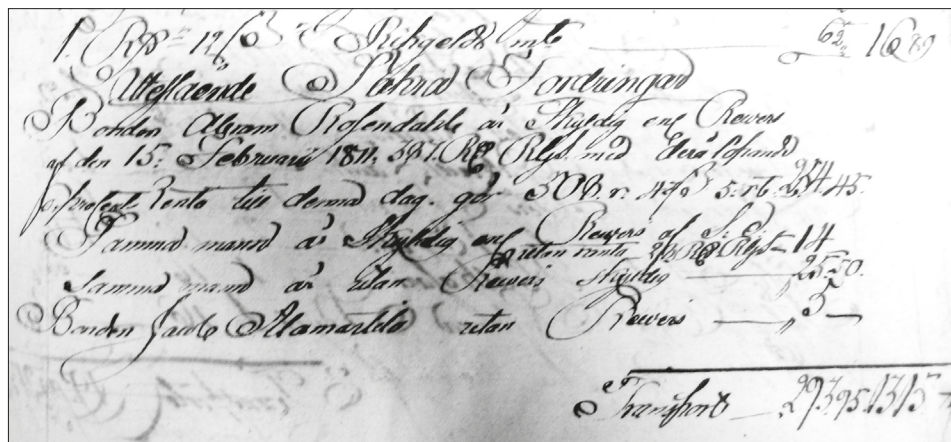 1. Rgs 12 ß Rikgelds mt 62. 16.89
Utestående Säkra Fordringar
Bonden Abram Rosendahl är skyldig enl Revers
af den 15. Februarii 1811. 397. Rd Rgs. med
procent Renta till denna dag. gör 508 r. 42 ß 5. r. 254.45.
Samma man är skyldig enl Revers af S. D.
utan renta 28 Rd Rgs 14
Samma man är utan Revers skyldig 25.50.
Bonden Jacob Alamarkila utan Revers 5
Transport 293.95.1313